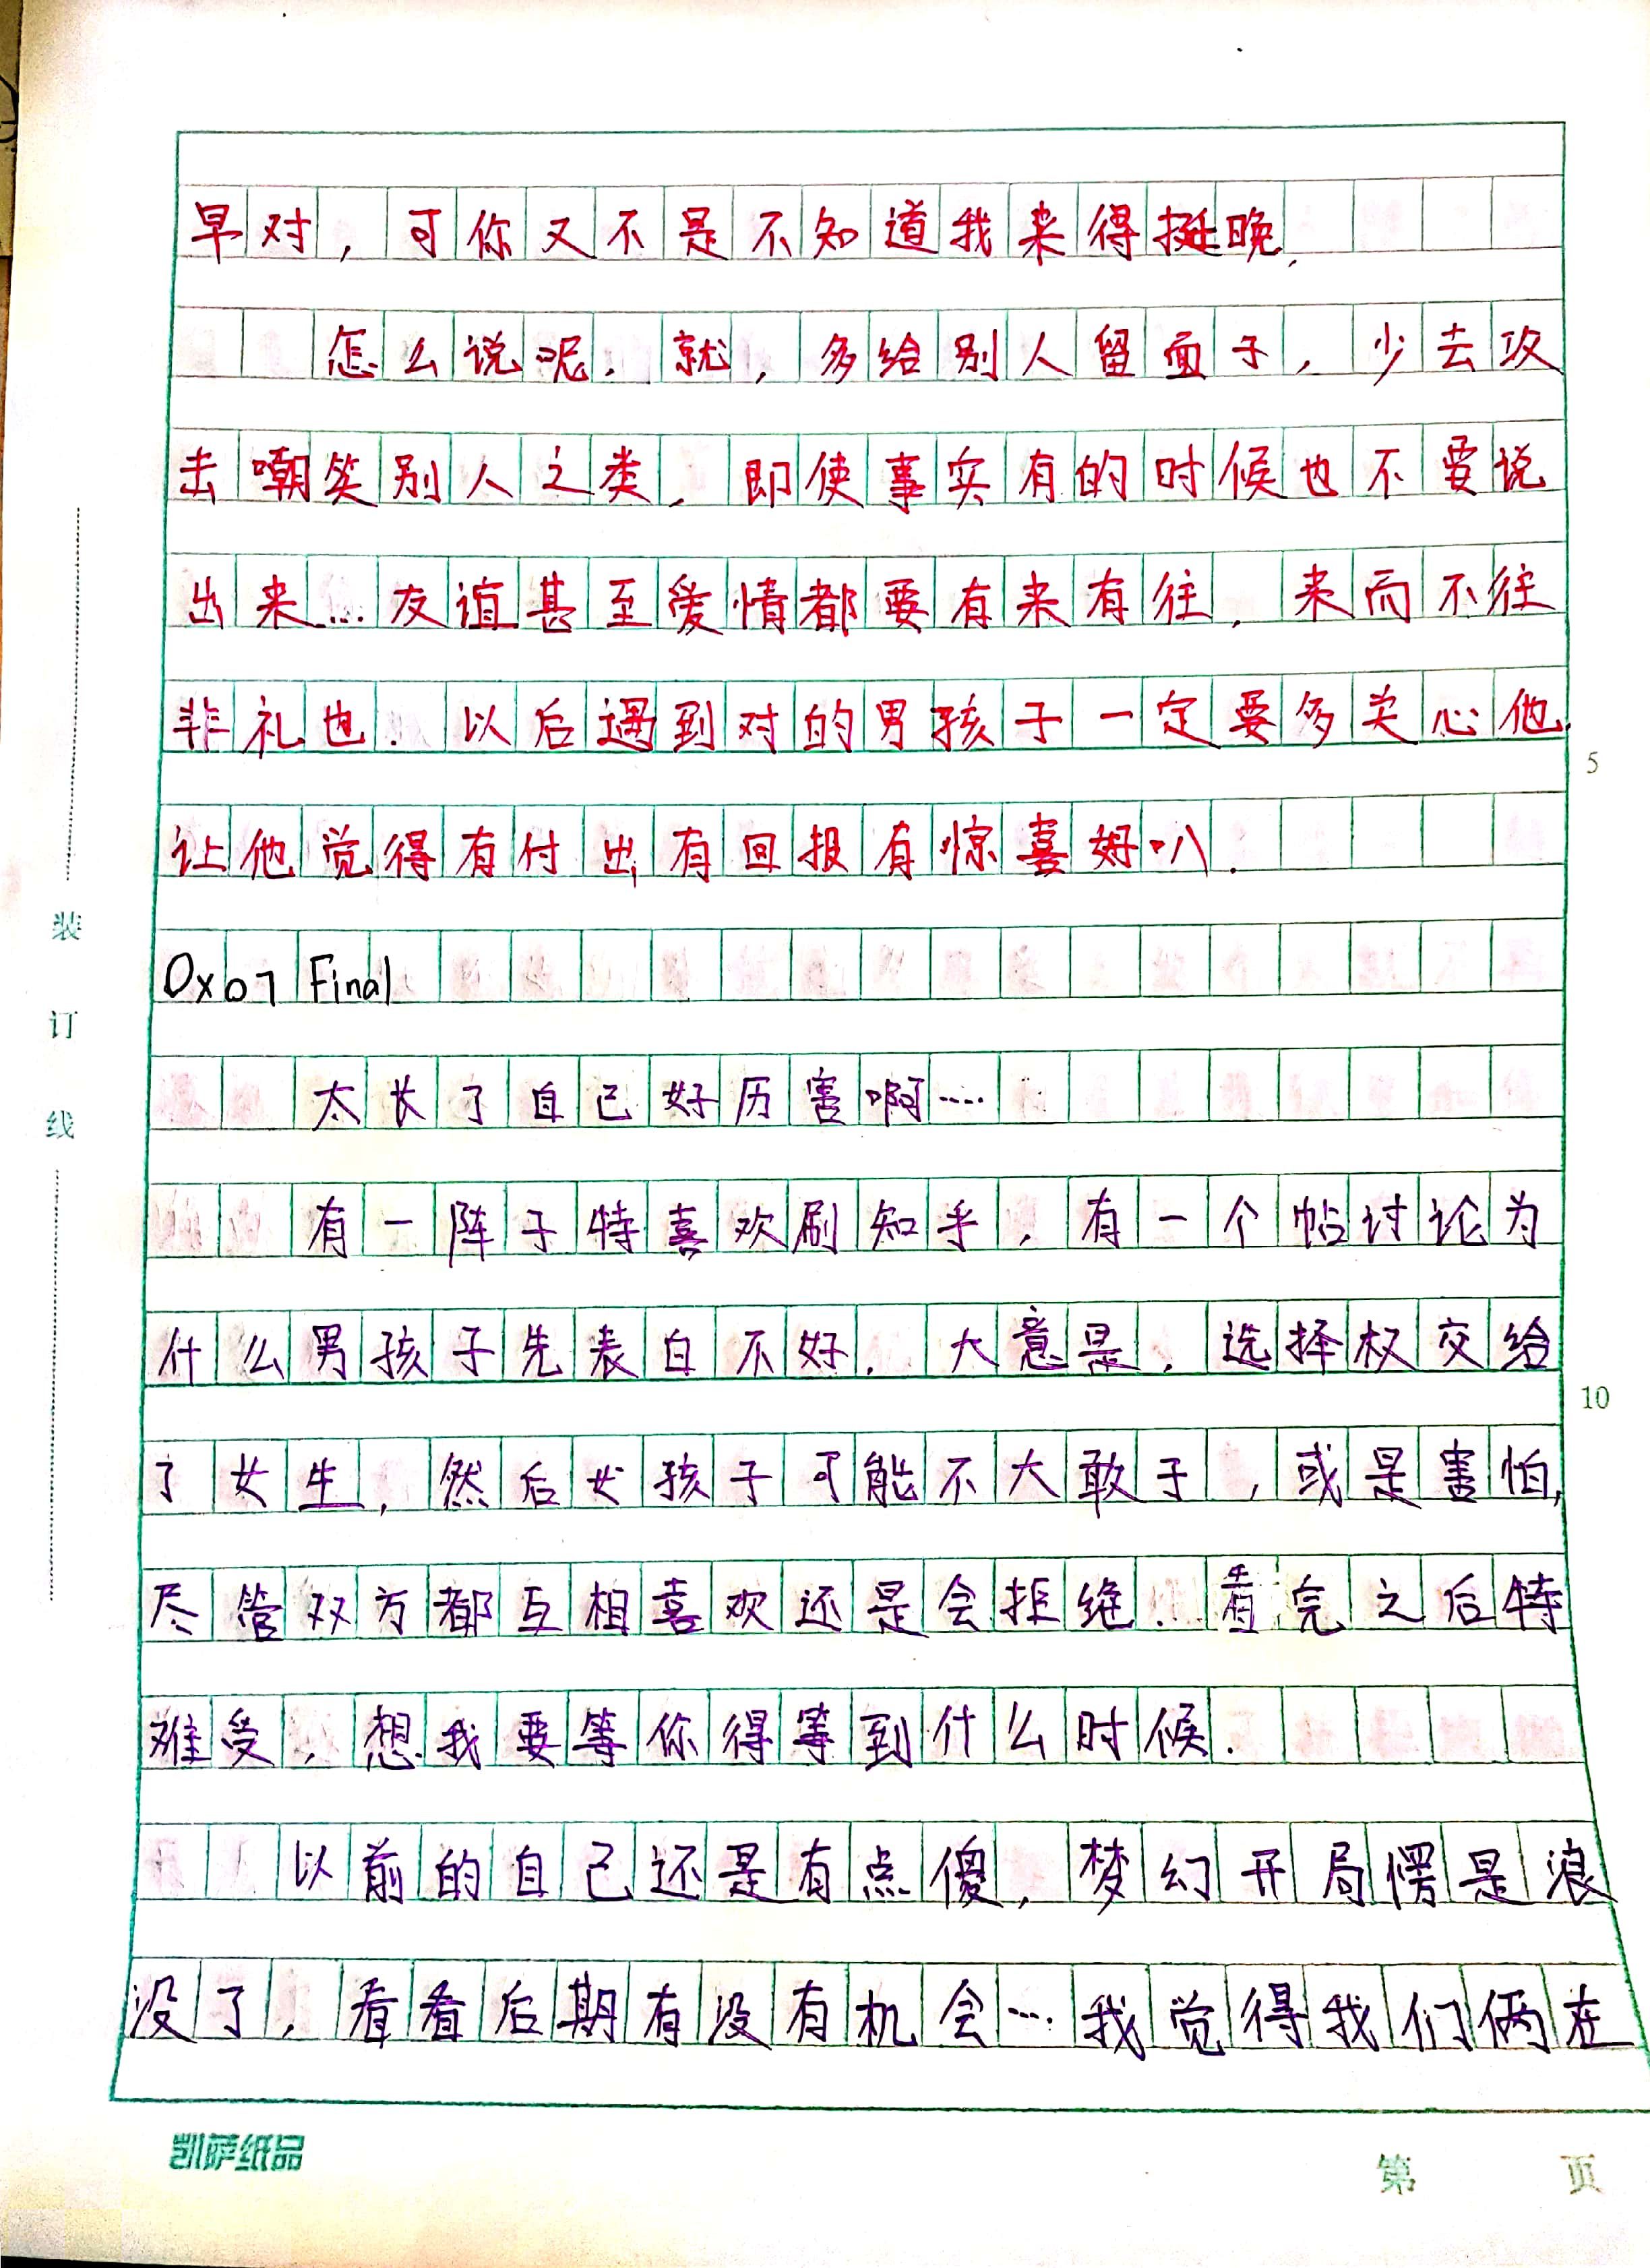 早对，可你又不是不知道我来得挺晚.
怎么说呢.就，多给别人留面子，少去攻
击嘲笑别人之类，即使事实有的时候也不要说
出来…友谊甚至爱情都要有来有往，来而不往
非礼也.以后遇到对的男孩子一定要多关心他，
让他觉得有付出有回报有惊喜好叭.
0x07 Final
太长了自己好历害啊……
有一阵子特喜欢刷知乎，有一个帖讨论为
什么男孩子先表白不好.大意是，选择权交给
了女生，然后女孩子可能不大敢于，或是害怕，
尽管双方都互相喜欢还是会拒绝.看完之后特
难受，想我要等你得等到什么时候.
以前的自己还是有点傻，梦幻开局愣是浪
没了，看看后期有没有机会…我觉得我们俩在
5
10
装
订
线
凯萨纸品
第 页